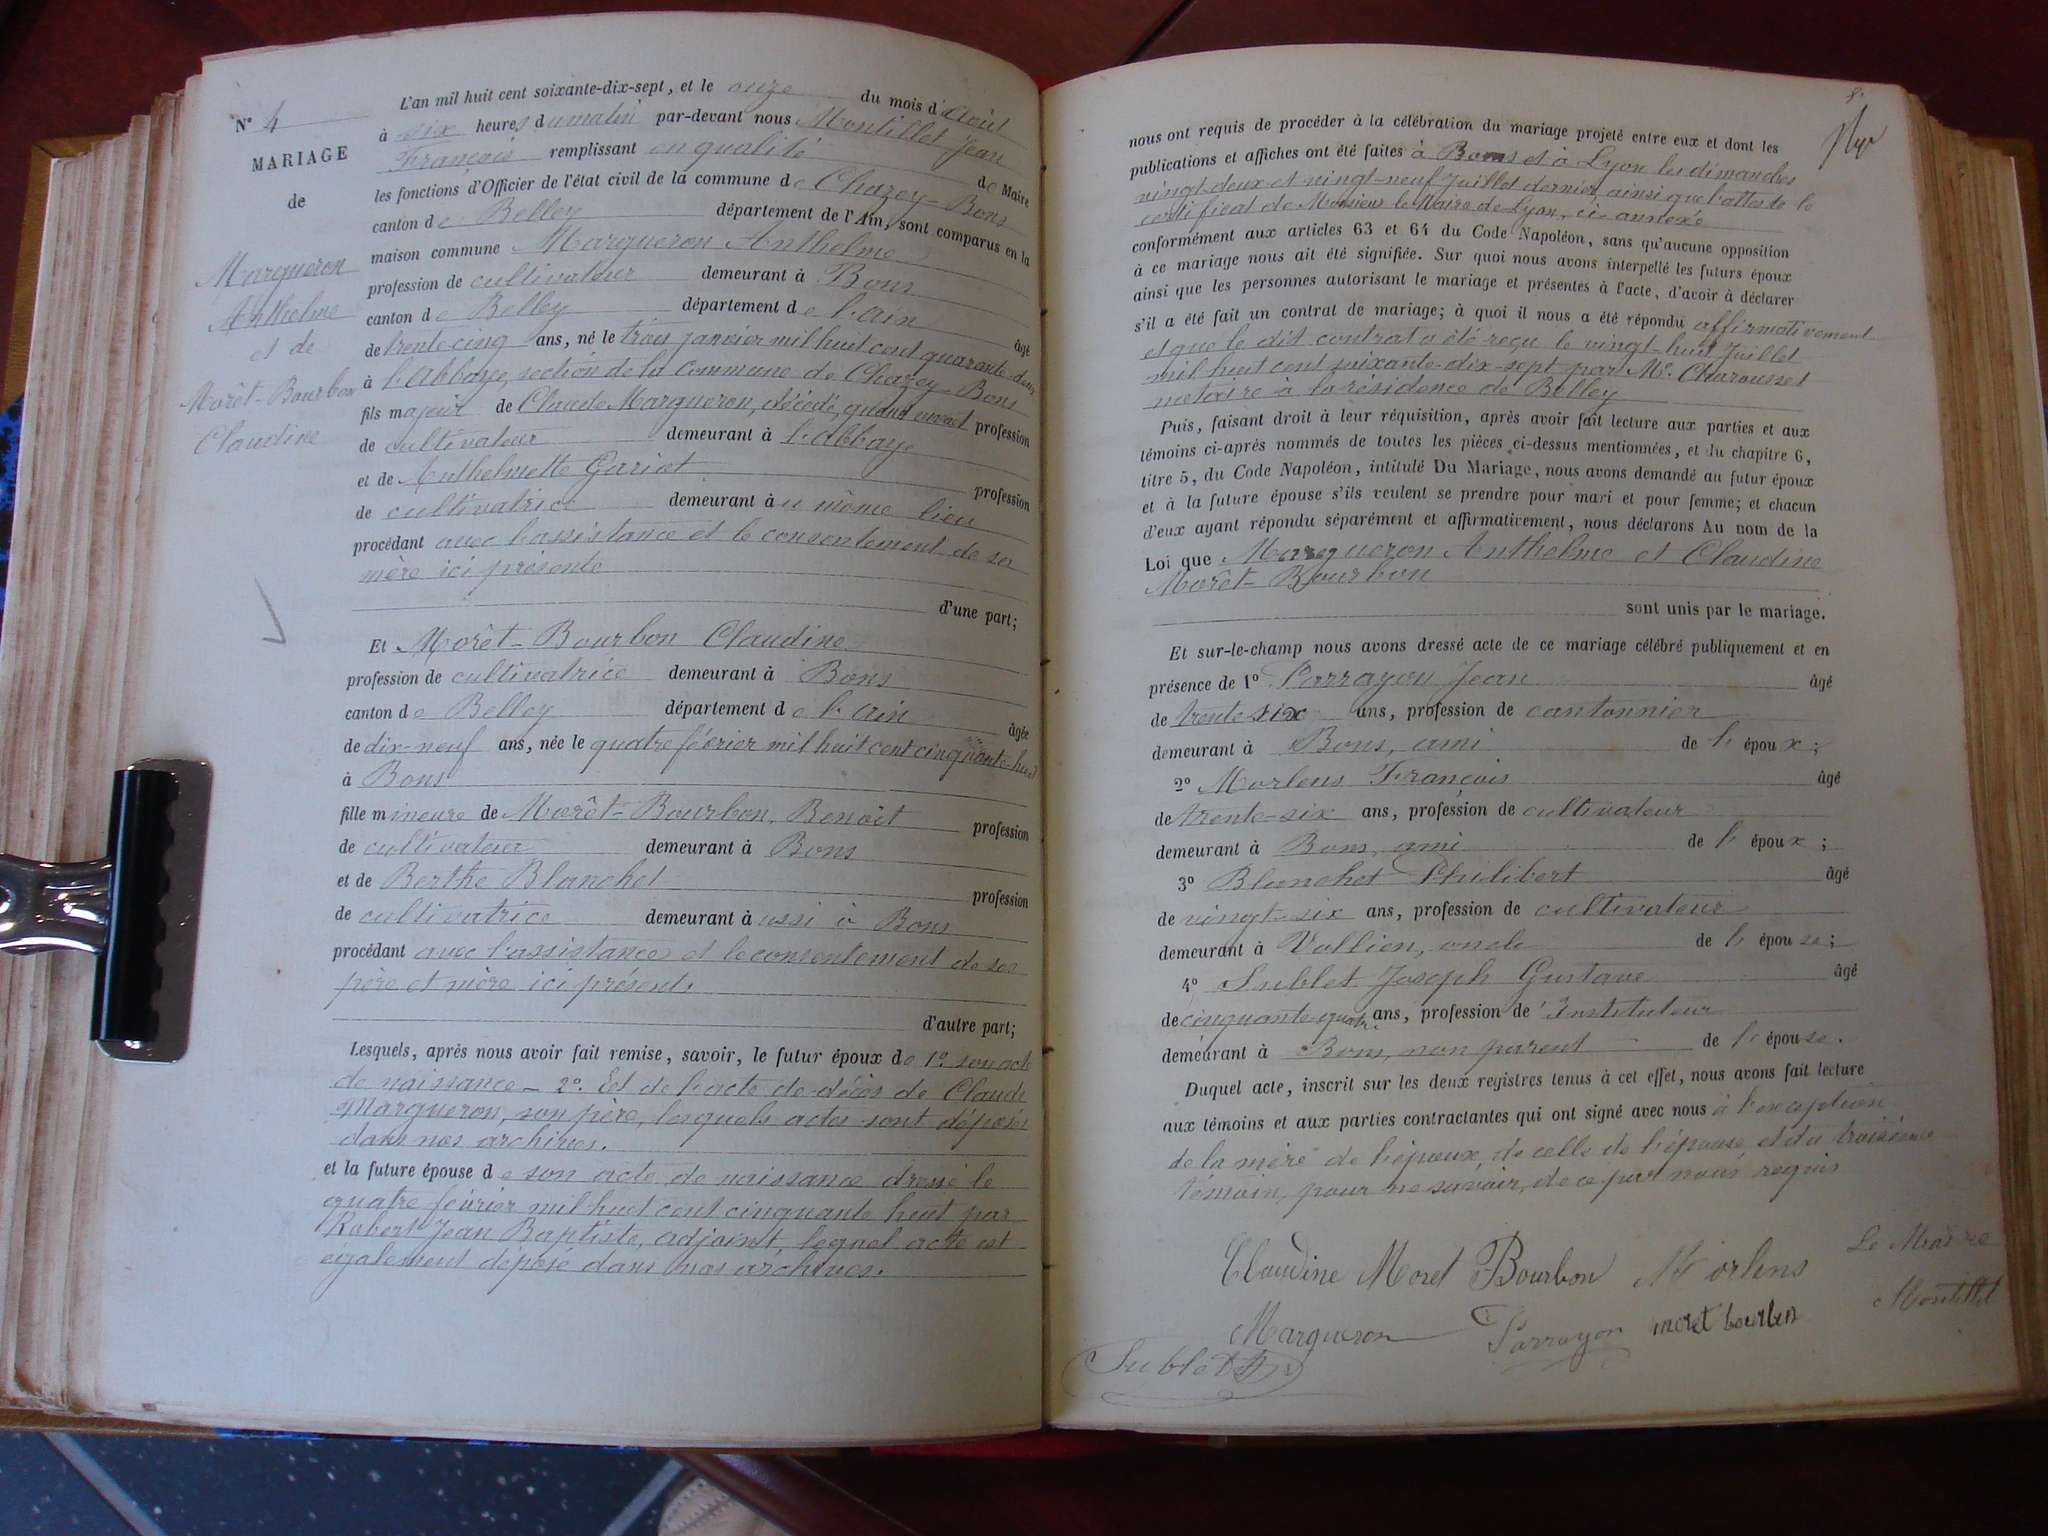 N° 4
MARIAGE
de
Margueron
Anthelme
et de
Morêt-Bourbon
Claudine
L'an mil huit cent soixante-dix-sept, et le onze du mois d'Août
à six heures du matin par-devant nous Montillet Jean
François remplissant en qualité de Maire
les fonctions d'Officier de l'état civil de la commune de Chazey-Bons
canton de Belley département de l'Ain, sont comparus en la
maison commune Margueron Anthelme
profession de cultivateur demeurant à Bons
canton de Belley département de l'ain âgé
de trente-cinq ans, né le trois janvier mil huit cent quarante-deux
à l'Abbaye, section de la commune de Chazey-Bons
fils majeur de Claude Margueron, décédé, quand vivait profession
de cultivateur demeurant à l'abbaye
et de Anthelmette Gariot profession
de cultivatrice demeurant au même lieu
procédant avec l'assistance et le consentement de sa
mère ici présente
d'une part;
Et Morêt-Bourbon Claudine
profession de cultivatrice demeurant à Bons
canton de Belley département de l'ain âgée
de dix-neuf ans, née le quatre février mil huit cent cinquante-huit
à Bons
fille mineure de Morêt-Bourbon, Benoît profession
de cultivateur demeurant à Bons
et de Berthe Blanchet profession
de cultivatrice demeurant aussi à Bons
procédant avec l'assistance et le consentement de ses
père et mère ici présents
d'autre part;
Lesquels, après nous avoir fait remise, savoir, le futur époux de 1° son acte
de naissance – 2°. Et de l'acte de décès de Claude
Margueron, son père, lesquels actes sont déposés
dans nos archives.
et la future épouse de son acte de naissance dressé le
quatre février mil huit cent cinquante huit par
Robert Jean Baptiste, adjoint, lequel acte est
également déposé dans nos archives.
8.
nous ont requis de procéder à la célébration du mariage projeté entre eux et dont les
publications et affiches ont été faites à Bons et à Lyon les dimanches
vingt-deux et vingt-neuf Juillet dernier, ainsi que l'atteste le
certificat de Monsieur le Maire de Lyon, ci-annexé
conformément aux articles 63 et 64 du Code Napoléon, sans qu'aucune opposition
à ce mariage nous ait été signifiée. Sur quoi nous avons interpellé les futurs époux
ainsi que les personnes autorisant le mariage et présentes à l'acte, d'avoir à déclarer
s'il a été fait un contrat de mariage; à quoi il nous a été répondu affirmativement
et que le dit contrat a été reçu le vingt-huit Juillet
mil huit cent soixante-dix-sept par Me. Charousset
notaire à la résidence de Belley
Puis, faisant droit à leur réquisition, après avoir fait lecture aux parties et aux
témoins ci-après nommés de toutes les pièces ci-dessus mentionnées, et du chapitre 6,
titre 5, du Code Napoléon, intitulé Du Mariage, nous avons demandé au futur époux
et à la future épouse s'ils veulent se prendre pour mari et pour femme; et chacun
d'eux ayant répondu séparément et affirmativement, nous déclarons Au nom de la
Loi que Margueron Anthelme et Claudine
Morêt-Bourbon
sont unis par le mariage.
Et sur-le-champ nous avons dressé acte de ce mariage célébré publiquement et en
présence de 1° Parrayon Jean âgé
de trente-six ans, profession de cantonnier
demeurant à Bons, ami de l'époux;
2° Morlens François âgé
de trente-six ans, profession de cultivateur
demeurant à Bons, ami de l'époux;
3° Blanchet Philibert âgé
de vingt-six ans, profession de cultivateur
demeurant à Vollien, oncle de l'épouse;
4° Sublet Joseph Gustave âgé
de cinquante-quatre ans, profession d'Instituteur
demeurant à Bons, non parent de l'épouse.
Duquel acte, inscrit sur les deux registres tenus à cet effet, nous avons fait lecture
aux témoins et aux parties contractantes qui ont signé avec nous à l'exception
de la mère de l'époux, de celle de l'épouse et du troisième
témoin, pour ne savoir, de ce par nous requis
Claudine Moret Bourbon Morlens
Le Maire
Montillet
Margueron Parrayon moret bourbon
Sublet